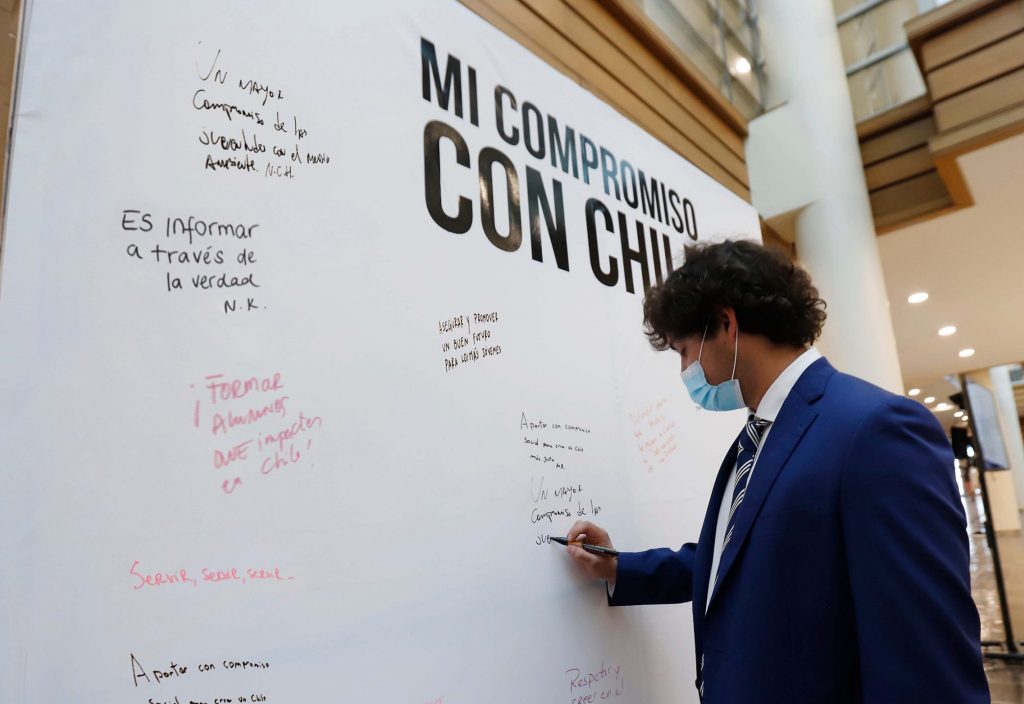 MI COMPROMISO
CON CHIL
UN MAYOR
Compromiso de las
juventudes con el medio
Ambiente. N.C.H.
Es informar
a través de
la verdad
N.K.
ASEGURAR Y PROMOVER
UN BUEN FUTURO
PARA LOS MÁS JÓVENES
¡FORMAR
ALUMNOS
QUE impacten
en Chile!
Aportar con compromiso
social para crear un Chile
más justo
UN MAYOR
Compromiso de las
JUE
Servir, servir, servir_
Aportar con compromiso
social para crear un Chile
Respetar y
creer en el